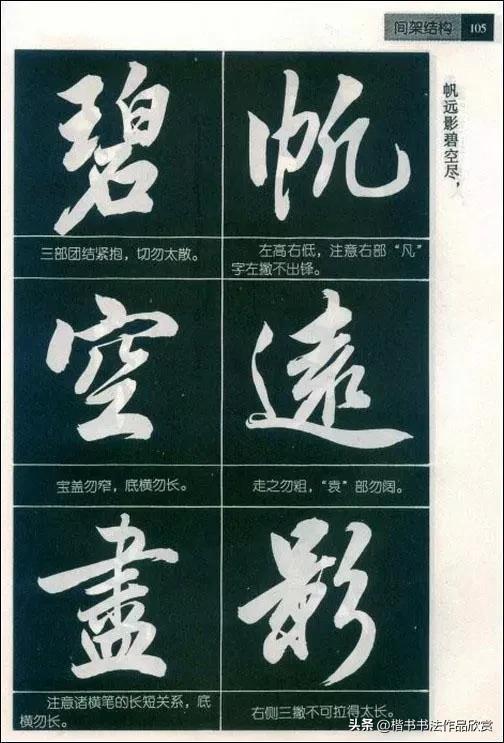 间架结构 105
帆远影碧空尽，
帆
左高右低，注意右部“凡”
字左撇不出锋。
遠
走之勿粗，“袁”部勿阔。
影
右侧三撇不可拉得太长。
碧
三部团结紧抱，切勿太散。
空
宝盖勿窄，底横勿长。
盡
注意诸横笔的长短关系，底
横勿长。
头条 @楷书书法作品欣赏